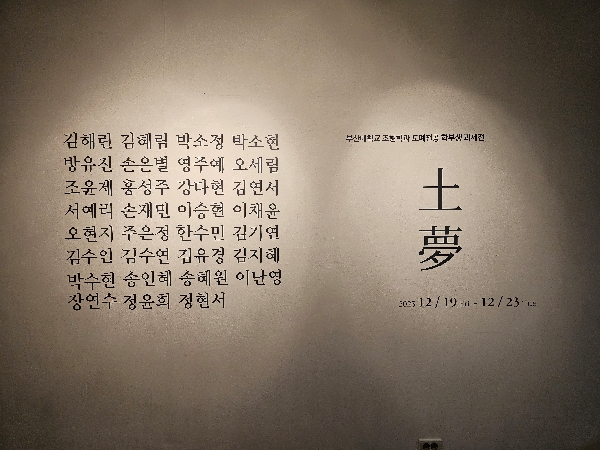 김해란 김혜림 박소정 박소현
방유진 손은별 영주예 오세림
조윤제 홍성주 강다현 김연서
서예리 손재민 이승현 이채윤
오현지 주은정 한수민 김가연
김수인 김수연 김유경 김지혜
박수현 송인혜 송혜원 이난영
장연수 정윤희 정현서
부산대학교 조형학과 도예전공 학부생 과제전
土
夢
2023 12 / 19 - 12 / 23